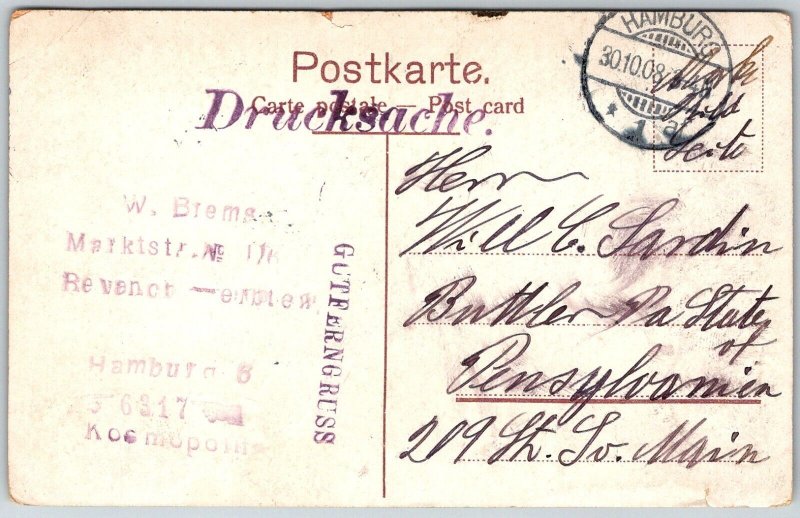 Postkarte.
Carte postale — Post card
Drucksache.
HAMBURG
30.10.08
* 1 e
Bild
Seite
W. Brems
Marktstr. №
Revanch erbeten
Hamburg 6
6317
Kosmopolit
GUTFERNGRUSS
Herr
Will C. Sardin
Buttler Pa State
of
Pensylvanien
209 St. So. Main